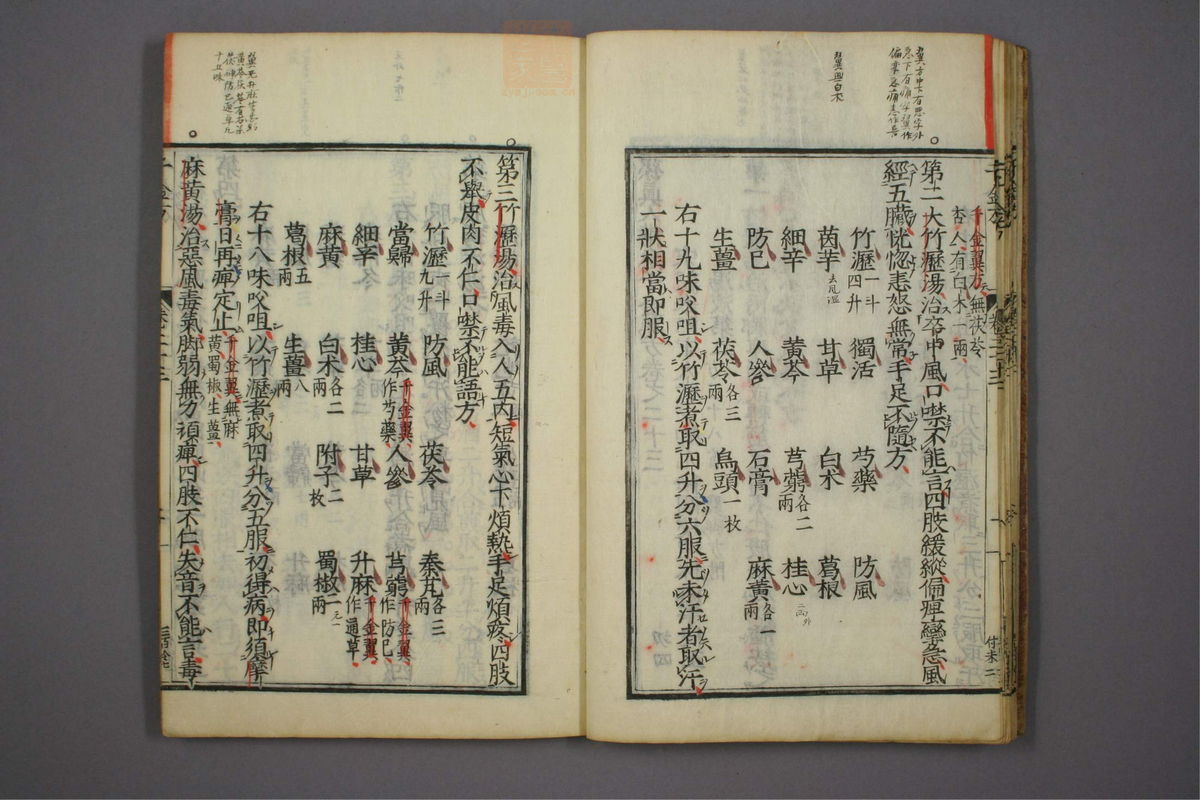 千金翼方無茯苓
杏人有白朮一兩
第二大竹瀝湯治卒中風口噤不能言四肢緩縱偏痺攣急風
經五臟恍惚恚怒無常手足不隨方
竹瀝一斗四升 獨活 芍藥 防風
茵芋 甘草 白朮 葛根
細辛 黃芩 芎藭各二兩 桂心
防已 人參 石膏 麻黃各一兩
生薑 茯苓各三兩 烏頭一枚
右十九味㕮咀以竹瀝煮取四升分六服先未汗者取汗
一狀相當即服
第三竹瀝湯治風毒入人五內短氣心下煩熱手足煩疼四肢
不舉皮肉不仁口噤不能語方
竹瀝一斗九升 防風 茯苓 秦艽各三兩
當歸 黃芩千金翼作芍藥 人參 芎藭千金翼作防已
細辛 桂心 甘草 升麻千金翼作通草
麻黃 白朮各二兩 附子二枚 蜀椒一兩
葛根五兩 生薑八兩
右十八味㕮咀以竹瀝煮取四升分五服初得病即須摩
膏日再痺定止千金翼無麻黃蜀椒生薑
麻黃湯治惡風毒氣脚弱無力頑痺四肢不仁失音不能言毒